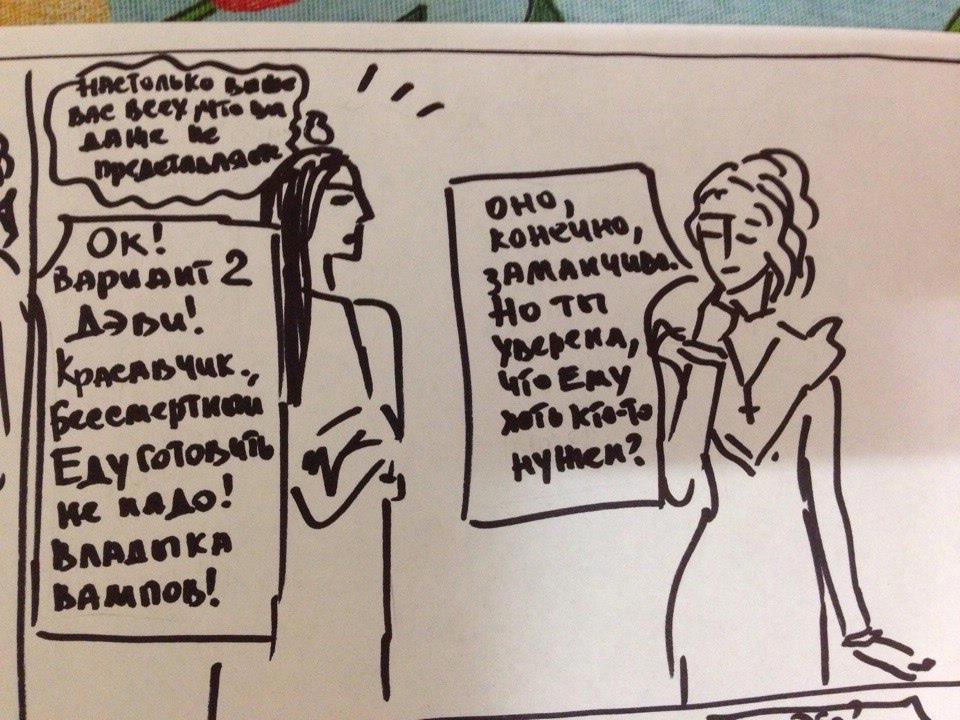 Настолько выше
вас всех, что вы
даже не
представляете
Ок!
Вариант 2
Дэви!
Красавчик.,
Бессмертный
Еду готовить
не надо!
Владыка
вампов!
Оно,
конечно,
заманчиво.
Но ты
уверена,
что Ему
хоть кто-то
нужен?